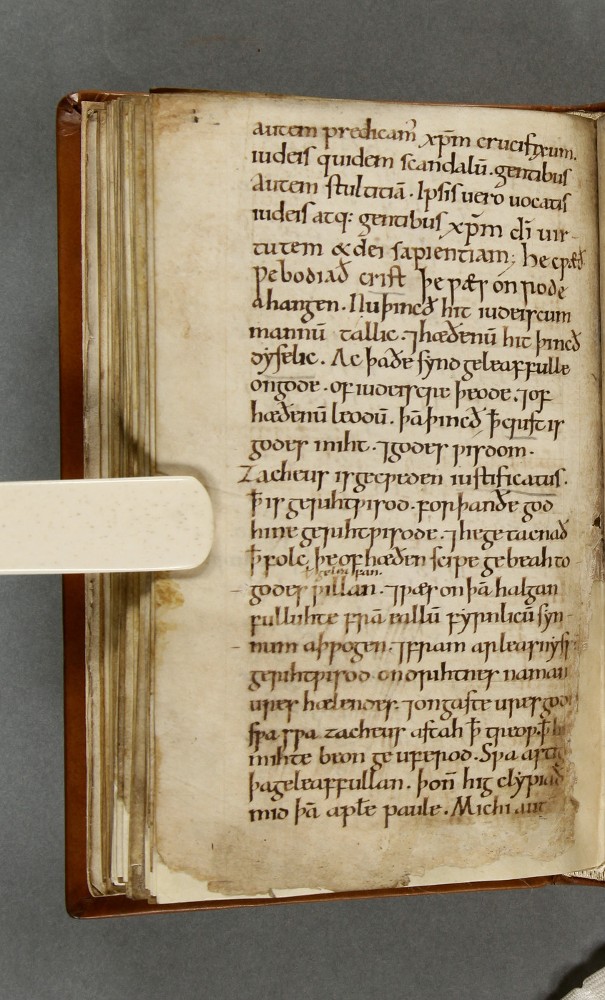 autem predicam̄ xp̄m crucifixum.
iudeis quidem scandalū. gentibus
autem stultitiā. Ipsis uero uocatis
iudeis atq: gentibus xp̄m di uir-
tutem & dei sapientiam; he cƿæð
ƿe bodiað crist þe ƿæs on rode
ahangen. Nu þincð hit iudeiscum
mannū tallic. ⁊ hæðenū hit þincð
dyselic. Ac þa ðe synd geleaffulle
on gode. of iudeiscre þeode. ⁊ of
hæðenū leodū. þā þincð ꝥ crist is
godes miht. ⁊ godes ƿisdom.
Zacheus is gecƿeden iustificatus.
ꝥ is gerihtƿisod. for þan ðe god
hine gerihtƿisode. ⁊ he getacnað
ꝥ folc, þe of hæðenscipe gebeah to
godes ƿillan. ⁊ ƿæs on þā halgan
fulluhte frā eallū fyrnlicū syn-
num aþƿogen. ⁊ fram arleasnysse
gerihtƿisod on drihtnes naman
ures hælendes. ⁊ on gaste ures godes
sƿa sƿa zacheus astah ꝥ treoƿ. ꝥ he
mihte beon ge uferod. Sƿa
þa geleaffullan. þoñ hig clypiað
mid þā apl̄e paule. Michi